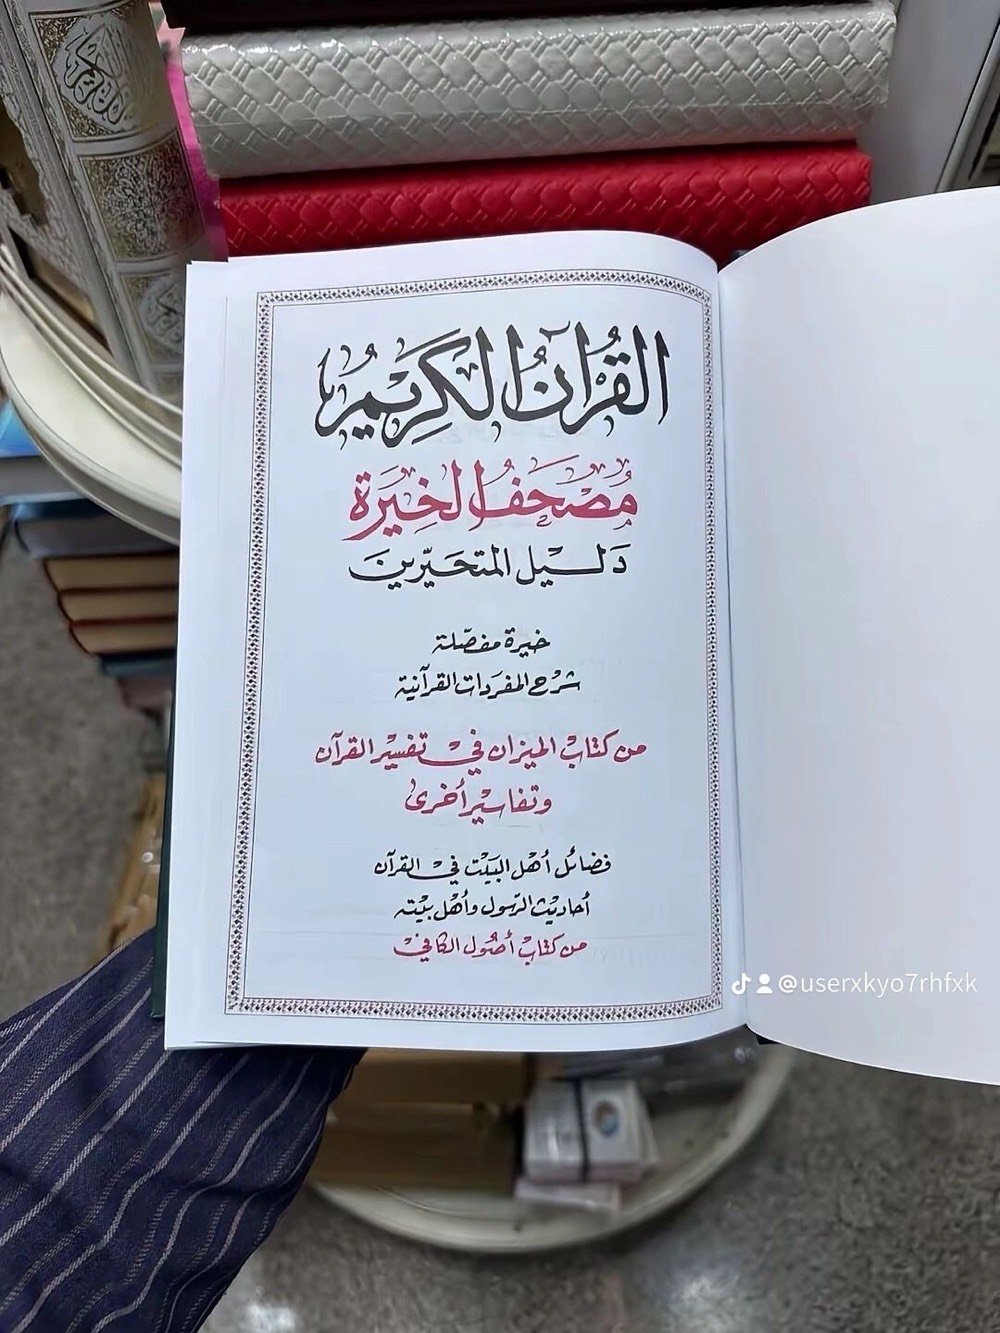 القُرآنُ الكَرِيمُ
مُصْحَفُ الخِيَرة
دَليل المتحَيّرينَ
خيرة مفصّلة
شرح المفرَدات القرآنية
من كتاب الميزان في تفسير القرآن
وتفاسير أخرى
فضائل أهل البيت في القرآن
أحاديث الرّسول وأهل بيته
من كتاب أصُول الكافي
@userxkyo7rhfxk